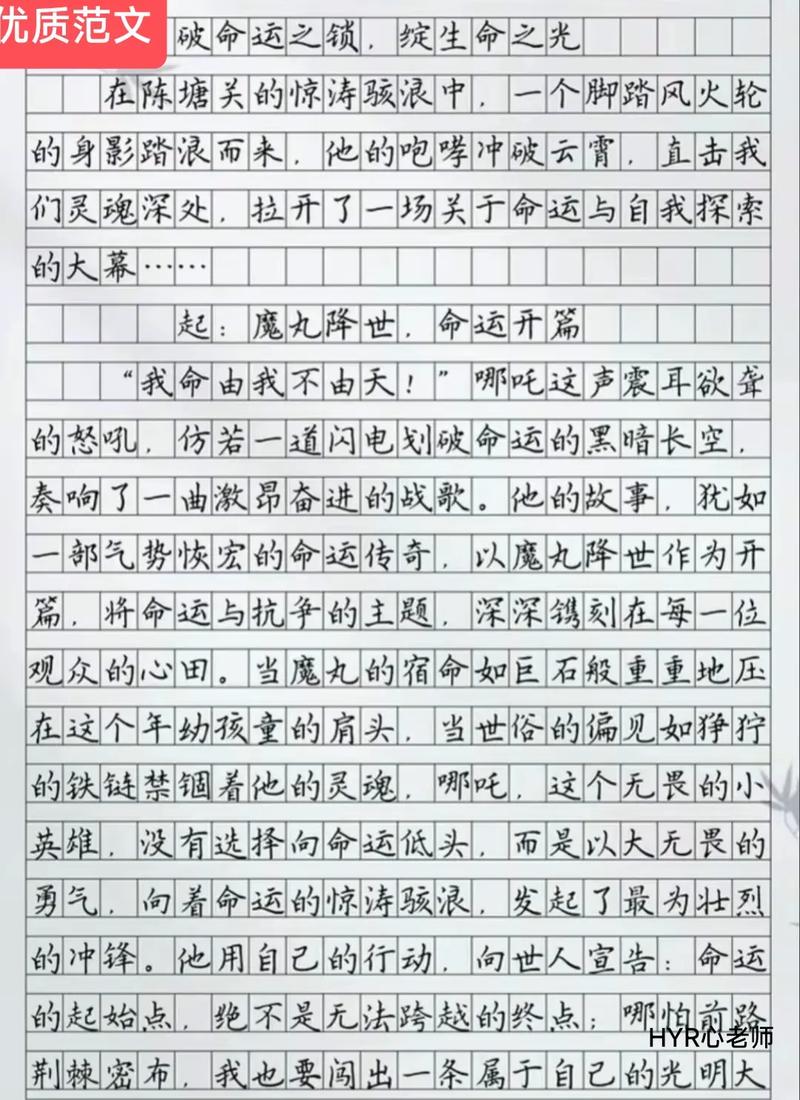 优质范文
破命运之锁，绽生命之光
在陈塘关的惊涛骇浪中，一个脚踏风火轮
的身影踏浪而来，他的咆哮冲破云霄，直击我
们灵魂深处，拉开了一场关于命运与自我探索
的大幕……
起：魔丸降世，命运开篇
“我命由我不由天！”哪吒这声震耳欲聋
的怒吼，仿若一道闪电划破命运的黑暗长空，
奏响了一曲激昂奋进的战歌。他的故事，犹如
一部气势恢宏的命运传奇，以魔丸降世作为开
篇，将命运与抗争的主题，深深镌刻在每一位
观众的心田。当魔丸的宿命如巨石般重重地压
在这个年幼孩童的肩头，当世俗的偏见如狰狞
的铁链禁锢着他的灵魂，哪吒，这个无畏的小
英雄，没有选择向命运低头，而是以大无畏的
勇气，向着命运的惊涛骇浪，发起了最为壮烈
的冲锋。他用自己的行动，向世人宣告：命运
的起始点，绝不是无法跨越的终点；哪怕前路
HYR心老师
荆棘密布，我也要闯出一条属于自己的光明大